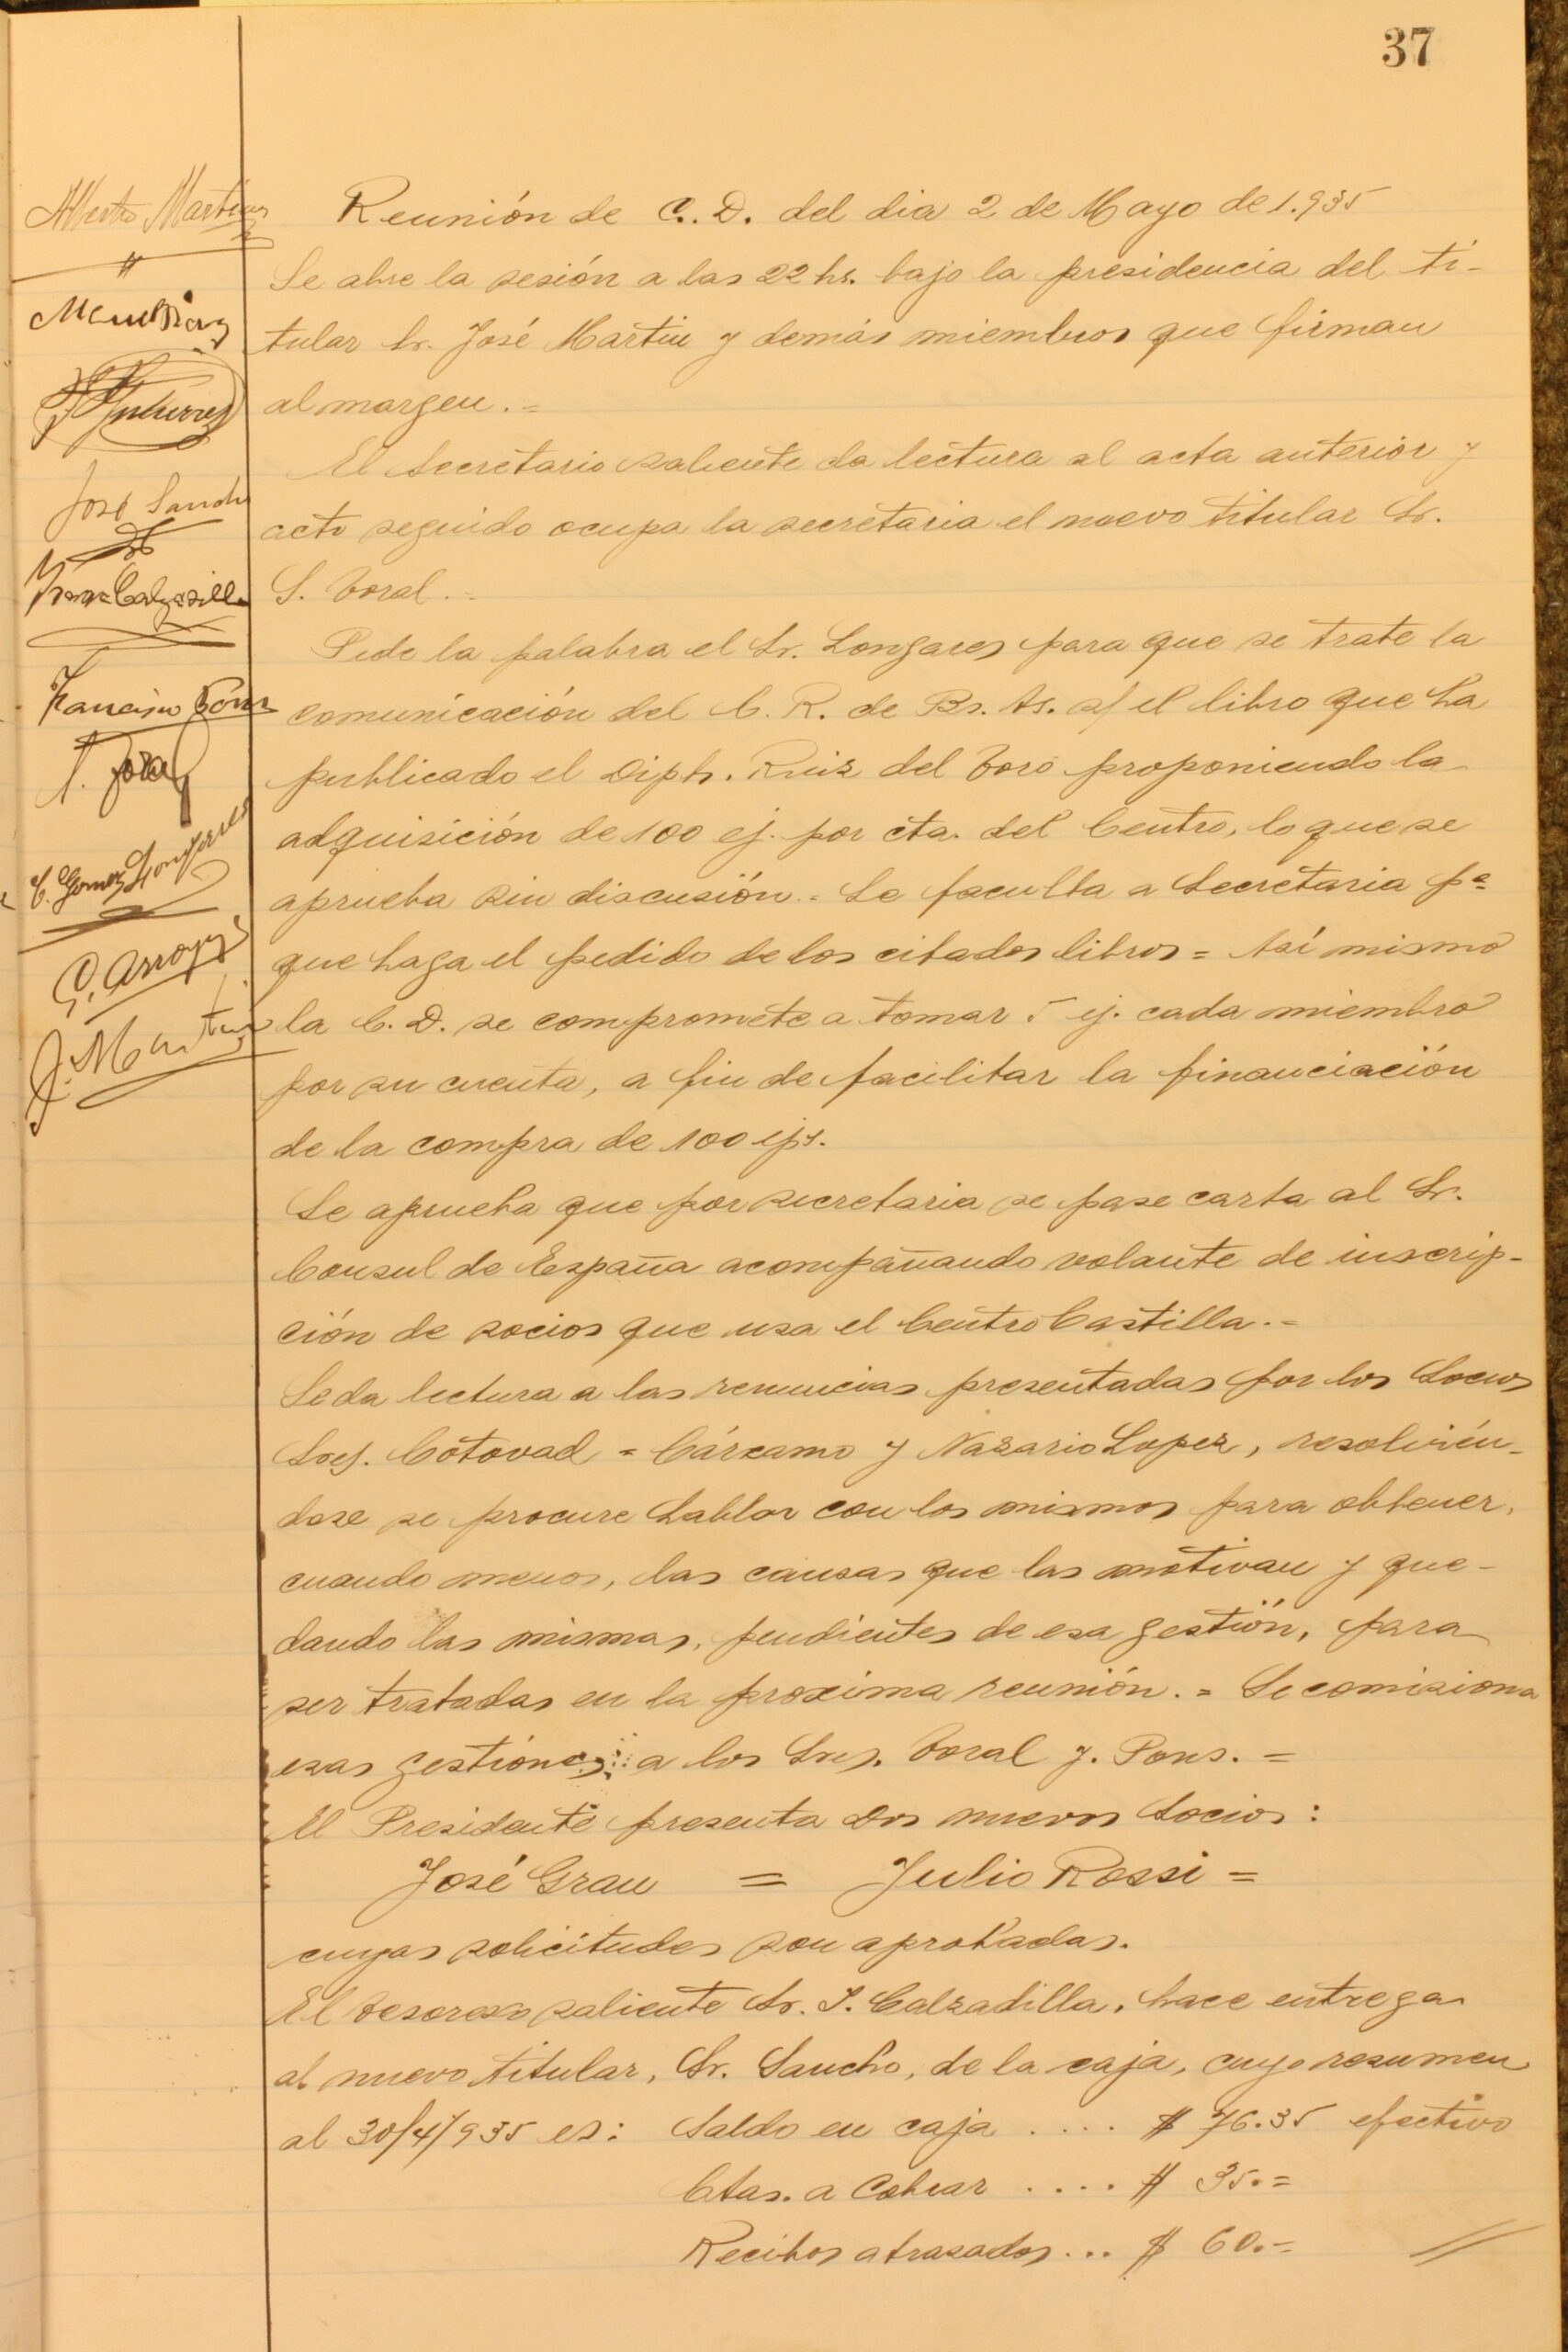 37
Alberto Martinez
Reunión de C. D. del dia 2 de Mayo de 1.935
Se abre la sesión a las 22 hs. bajo la presidencia del ti-
tular Sr. José Martin y demás miembros que firman
al margen.=
El Secretario saliente da lectura al acta anterior y
acto seguido ocupa la secretaria el nuevo titular Sr.
S. Toral.=
Pide la palabra el Sr. Longares para que se trate la
comunicación del C. R. de Bs. As. s/ el libro que ha
publicado el Dipt. Ruiz del Toro proponiendo la
adquisición de 100 ej. por cta. del Centro, lo que se
aprueba sin discusión.= Se faculta a Secretaria pa
que haga el pedido de los citados libros = Asi mismo
la C. D. se compromete a tomar 5 ej. cada miembro
por su cuenta, a fin de facilitar la financiación
de la compra de 100 ejs.
Se aprueba que por secretaria se pase carta al Sr.
Consul de España acompañando volante de inscrip-
ción de socios que usa el Centro Castilla.=
Se da lectura a las renuncias presentadas por los Socios
Sres. Cotovad = Cárcamo y Nazario Lopez, resolvién-
dose se procure hablar con los mismos para obtener,
cuando menos, las causas que las motivan y que-
dando las mismas, pendientes de esa gestión, para
ser tratadas en la proxima reunión.= Se comisiona
esas gestiónes a los Sres. Toral y. Pons.=
El Presidente presenta dos nuevos Socios:
José Grau = Julio Rossi =
cuyas solicitudes son aprobadas.
El tesorero saliente Sr. I. Calzadilla, hace entrega
al nuevo titular, Sr. Sancho, de la caja, cuyo resumen
al 30/4/935 es: Saldo en caja .... $ 76.35 efectivo
Ctas. a Cobrar .... $ 35.=
Recibos atrasados... $ 60.=
Gutierrez
José Sancho
Calzadilla
Francisco Pons
S. Toral
C. Gomez Longares
G. Arroyo
J. Martin